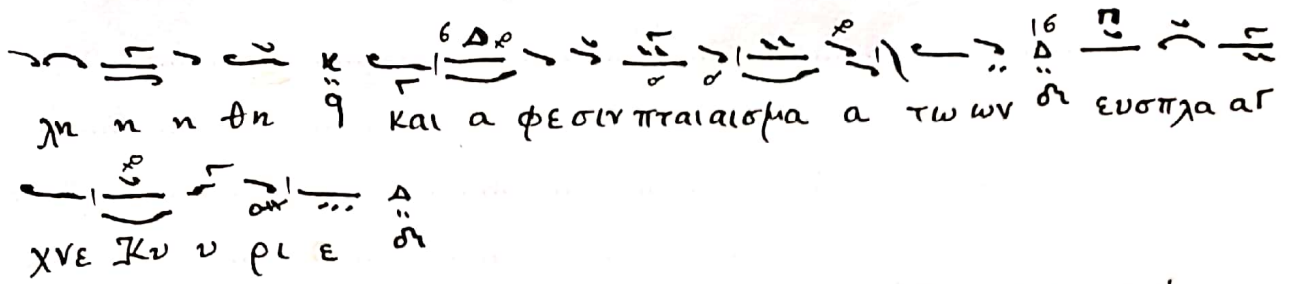 λη η η θη ϥ και α φεσιν πταιαισμα α τω ων δι ευσπλα αγ
χνε Κυ υ ρι ε δι